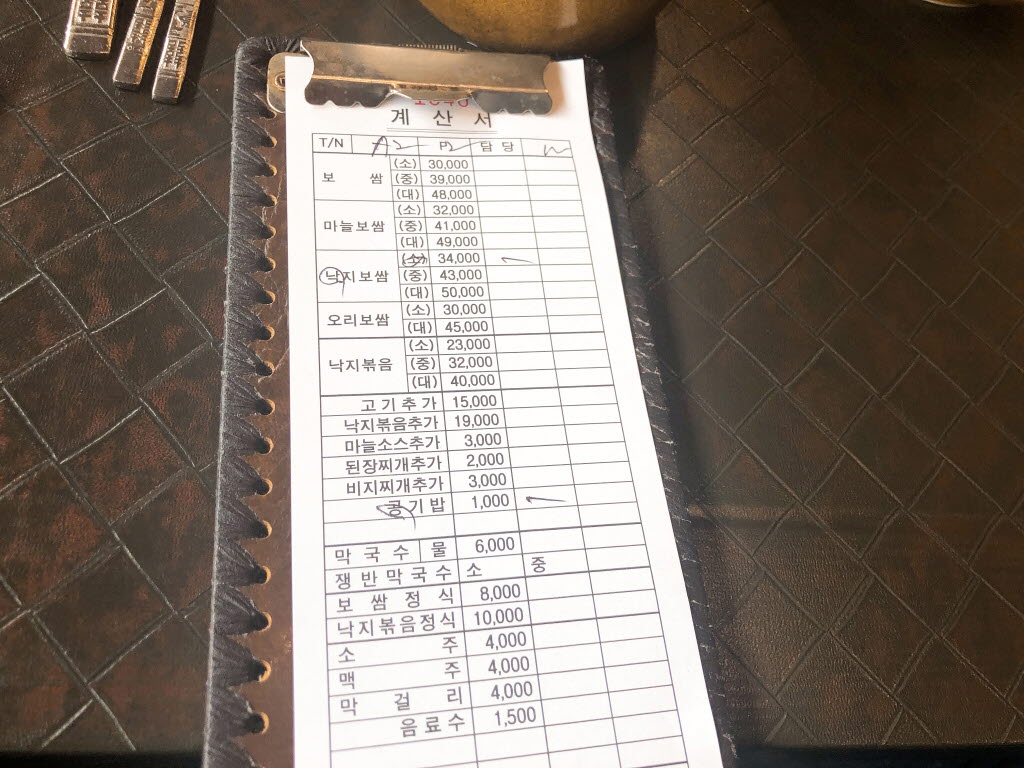 계 산 서
T/N A2 P2 담 당
보 쌈 (소) 30,000
(중) 39,000
(대) 48,000
마늘보쌈 (소) 32,000
(중) 41,000
(대) 49,000
낙지보쌈 (소) 34,000
(중) 43,000
(대) 50,000
오리보쌈 (소) 30,000
(대) 45,000
낙지볶음 (소) 23,000
(중) 32,000
(대) 40,000
고기추가 15,000
낙지볶음추가 19,000
마늘소스추가 3,000
된장찌개추가 2,000
비지찌개추가 3,000
공기밥 1,000
막 국 수 물 6,000
쟁반막국수 소 중
보 쌈 정 식 8,000
낙지볶음정식 10,000
소 주 4,000
맥 주 4,000
막 걸 리 4,000
음료수 1,500